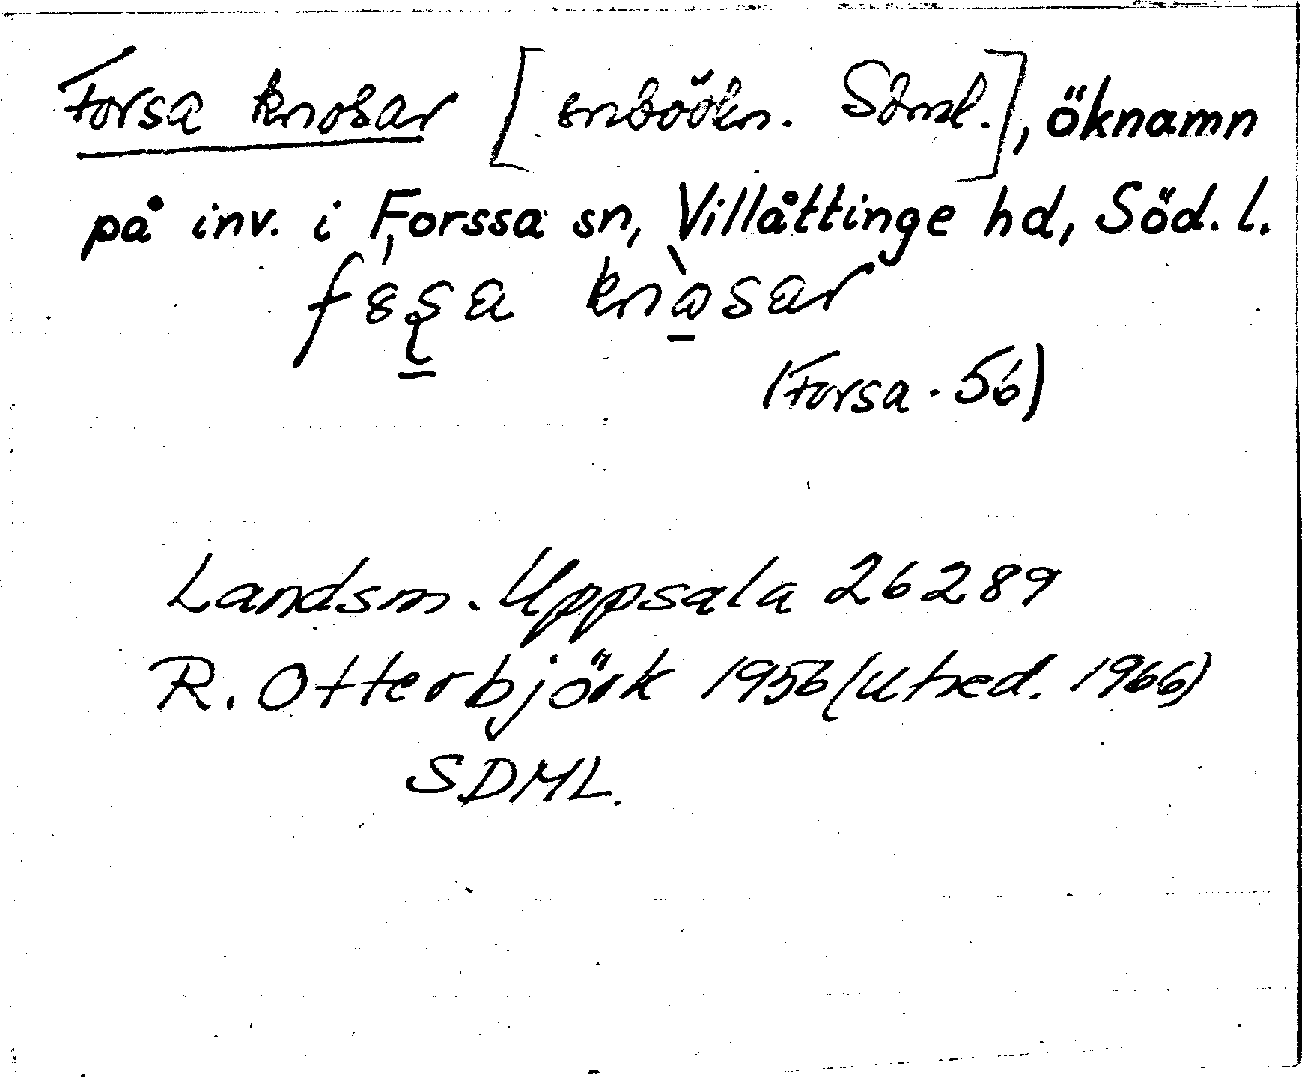 Forsa knosar [snböökn. Söml.], öknamn
på inv. i Forssa sn, Villåttinge hd, Söd. l.
knosar
(Forsa. 56)
Landsm. Uppsala 26289
R. Otterbjörk 1956 (utred. 1966)
SDML.